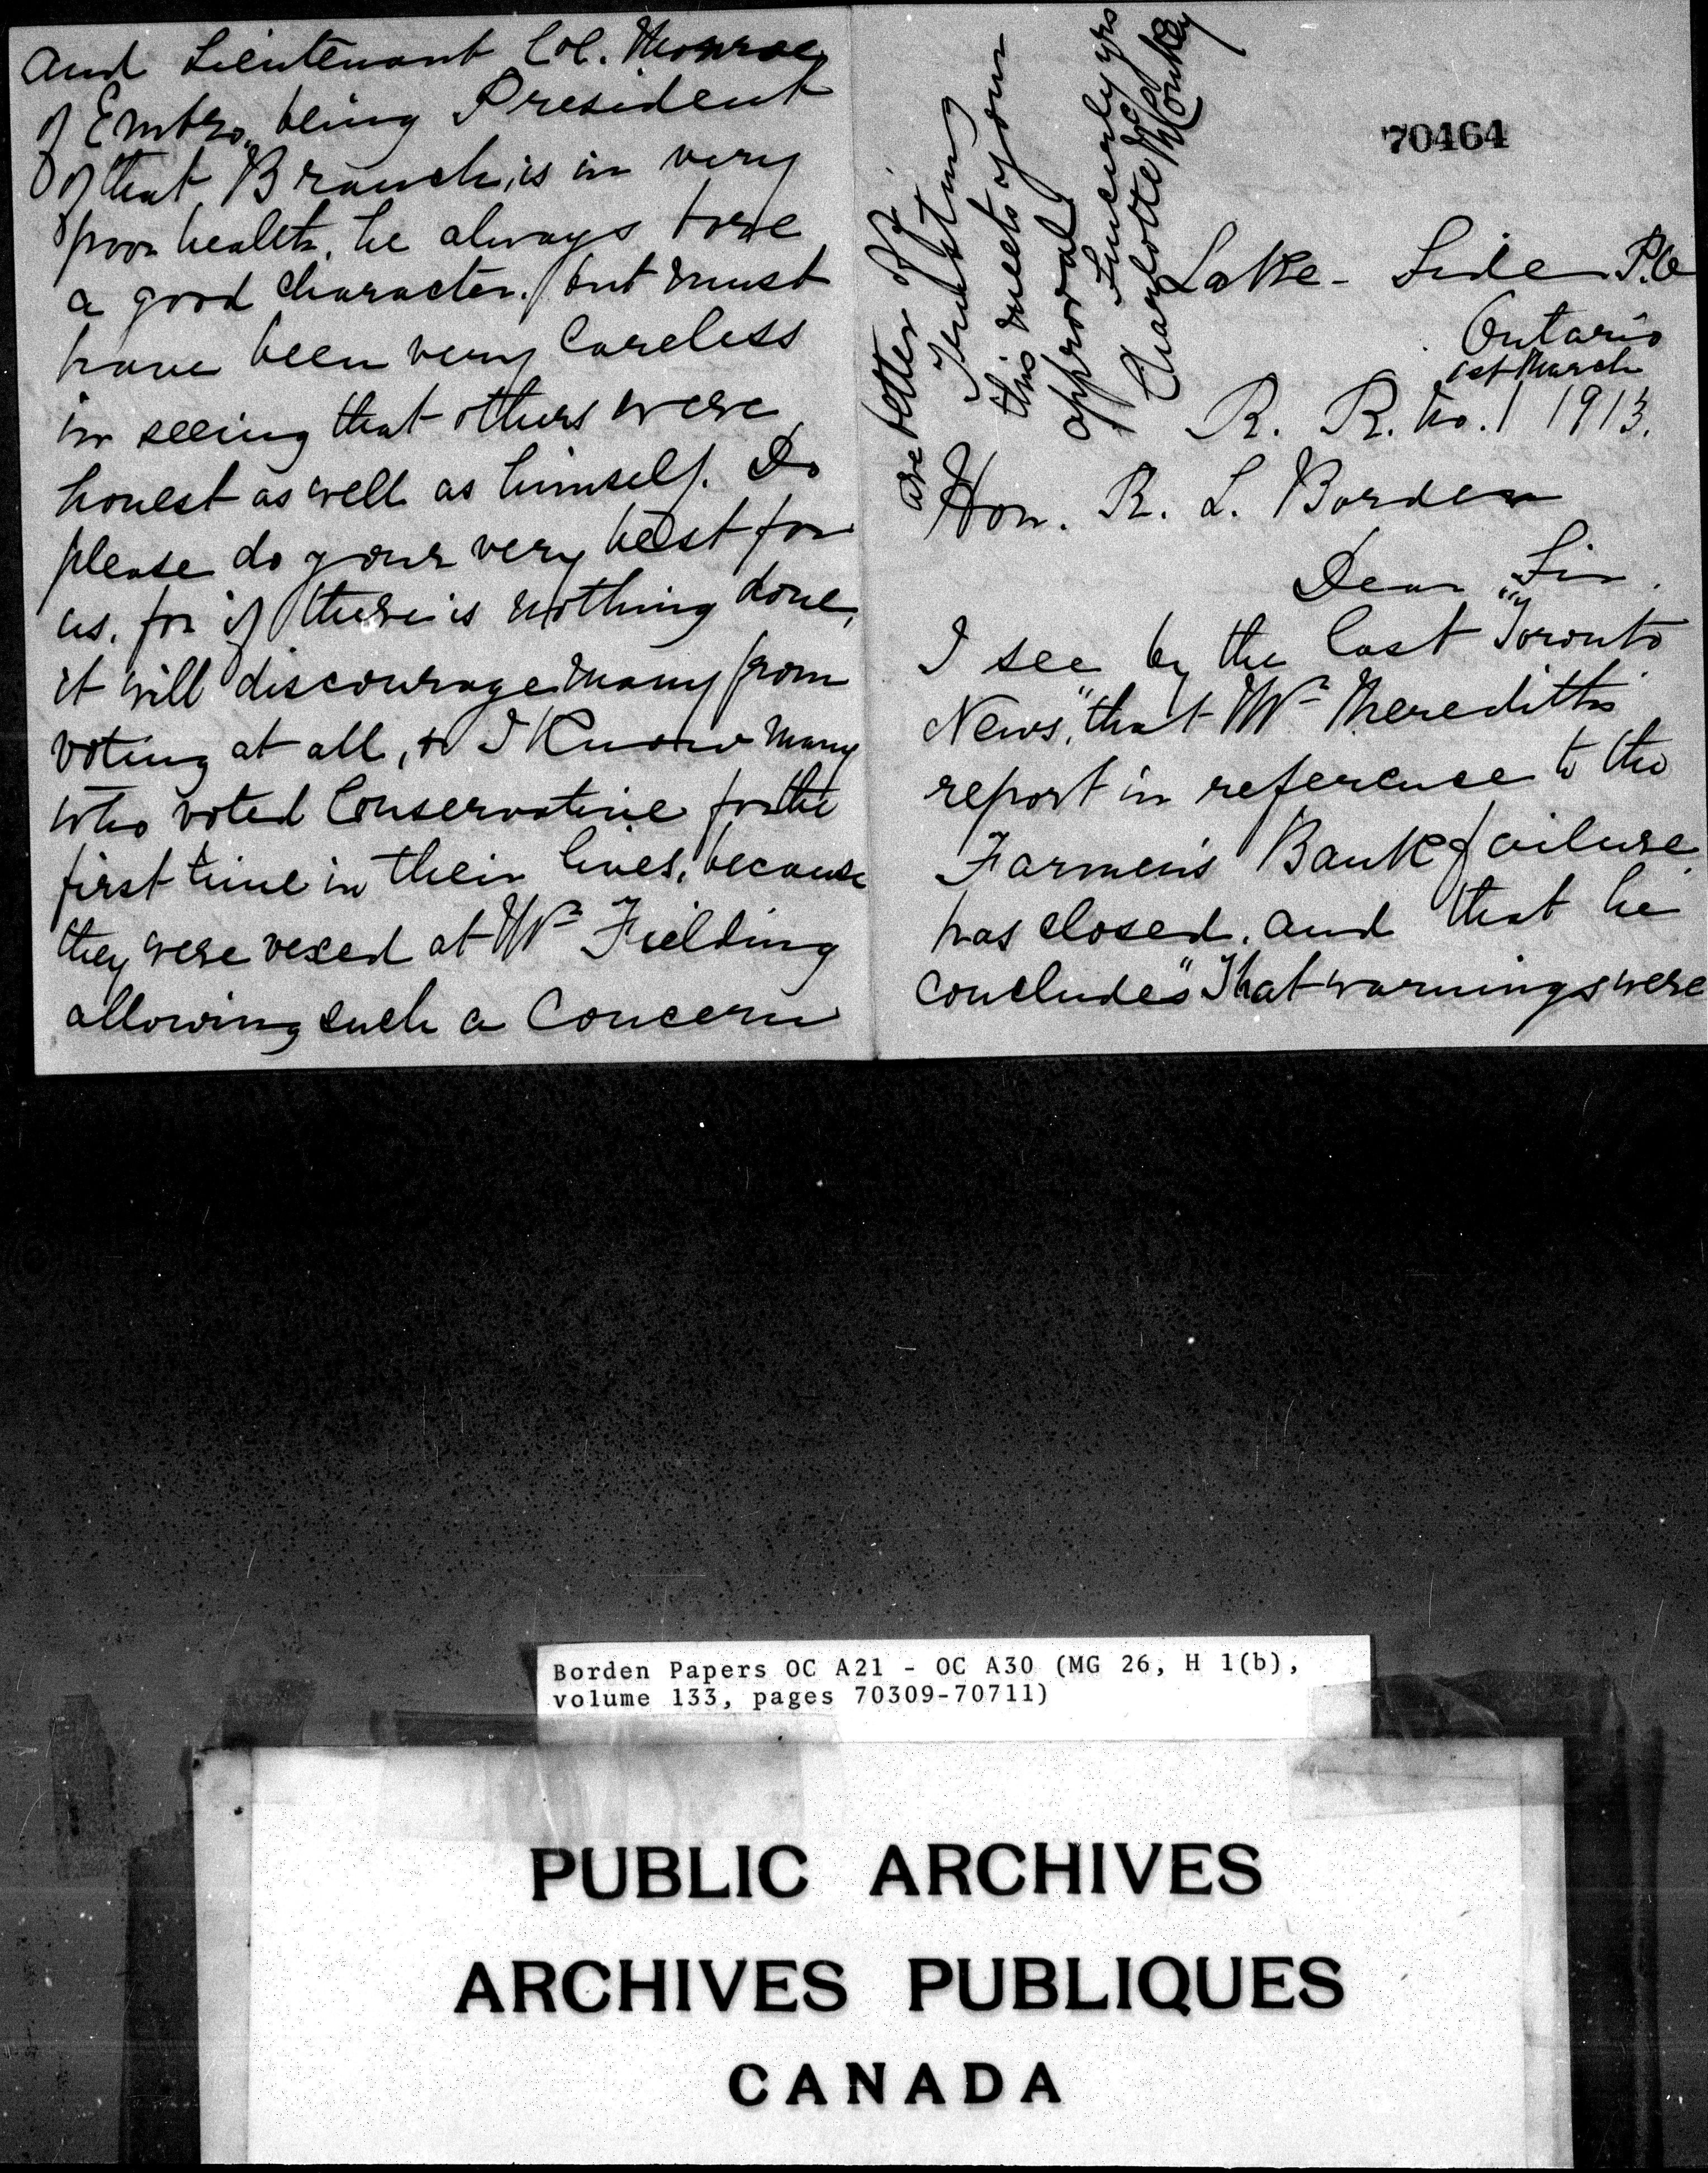 and Lieutenant Col. Monroe
of Embro, being President
of that Branch, is in very
poor health, he always bore
a good character, but must
have been very careless
in seeing that others were
honest as well as himself. Do
please do your very best for
us, for if there is nothing done,
it will discourage many from
voting at all, & I Know many
who voted Conservative for the
first time in their lives, because
they were vexed at Mr Fielding
allowing such a Concern
are better off.
Trusting
this meets your
approval
Sincerely yrs
Charlotte McConkey
70464
Lake-Side P.O
Ontario
1st March
R. R. No. 1 1913.
Hon. R. L. Borden
Dear Sir.
I see by the last "Toronto
News," that Mr Meredith's
report in reference to the
Farmers Bank failure
has closed, and that he
concludes "That warnings were
Borden Papers OC A21 - OC A30 (MG 26, H 1(b),
volume 133, pages 70309-70711)
PUBLIC ARCHIVES
ARCHIVES PUBLIQUES
CANADA